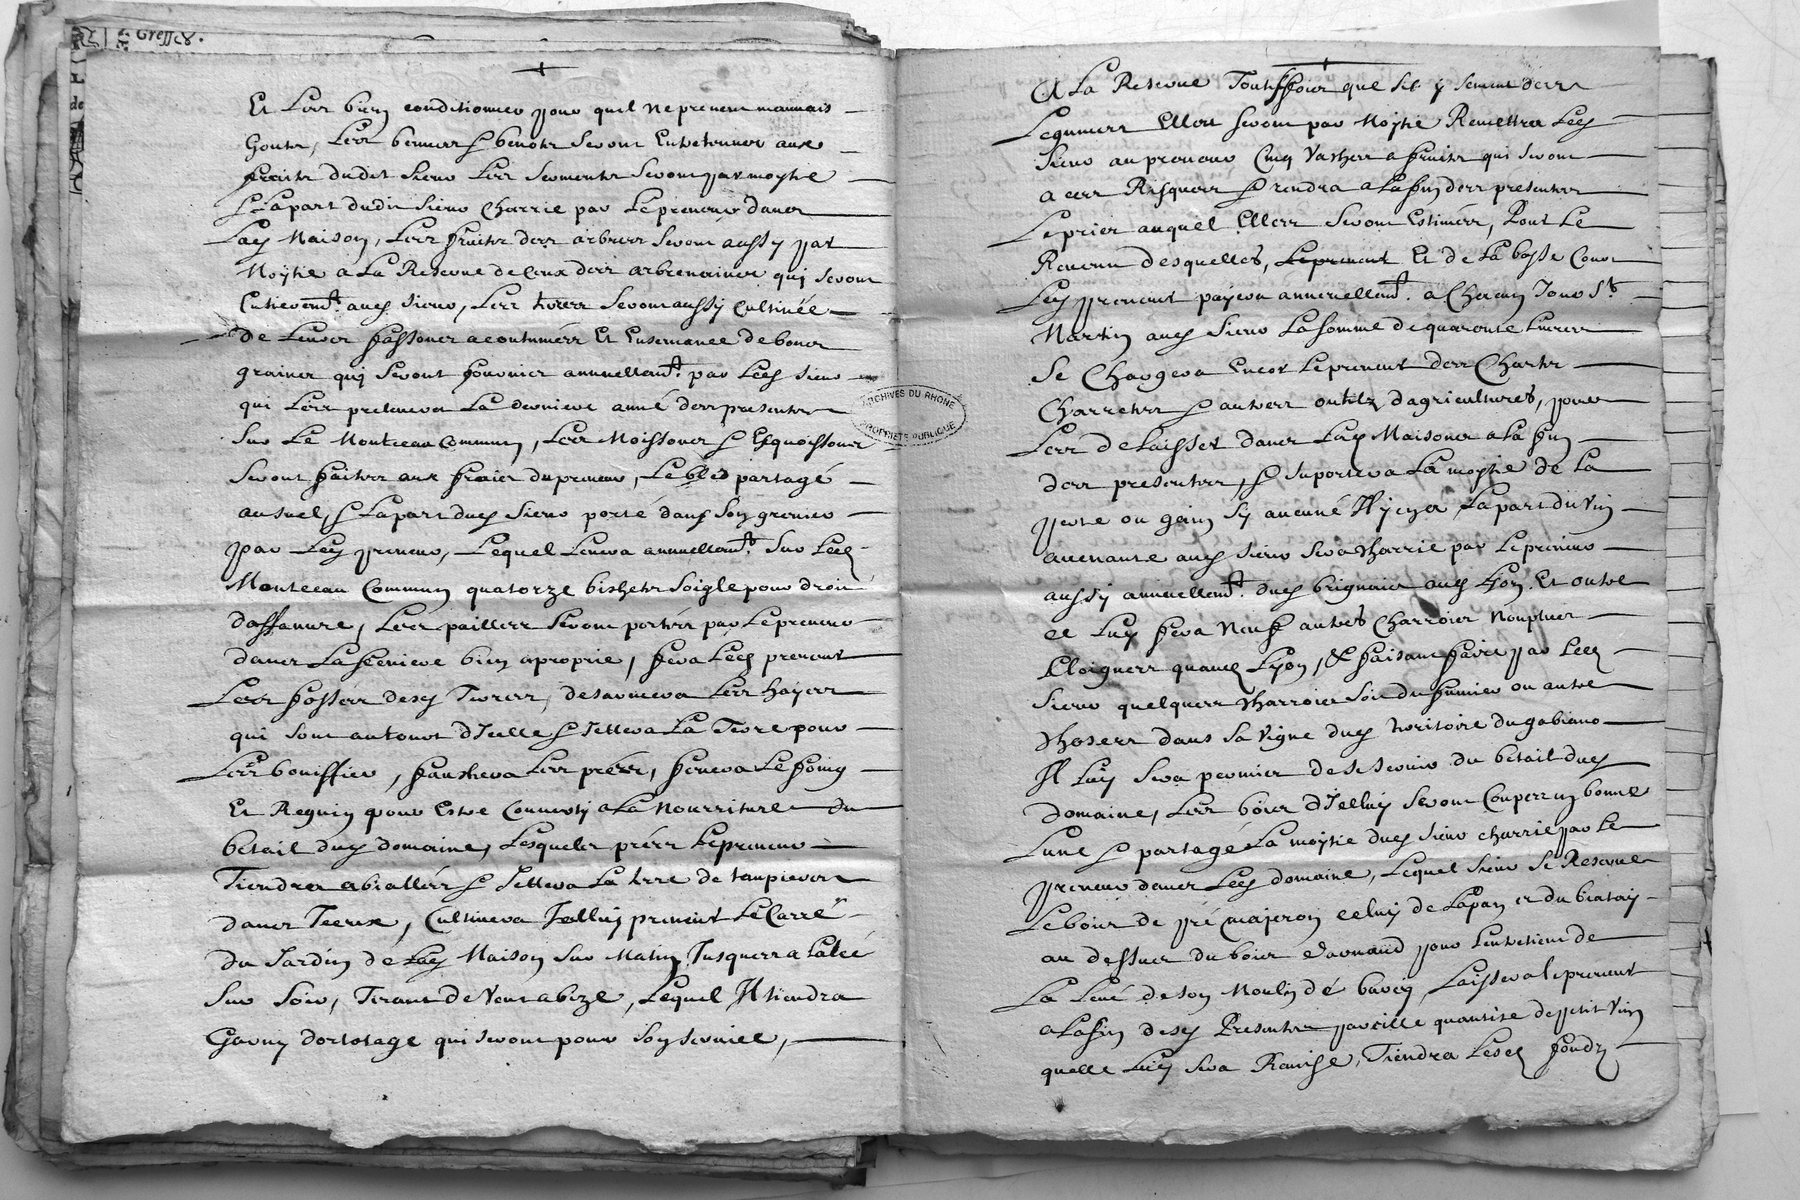 Greffes.
Et Lers bien conditionner pour quil ne prenent mauvais
Goute, Lers benners & benots seront Entretenues aux
fraits dudit sieur Lers serments seront par moytie
& La part dudit sieur Charrie par Le preneur dans
Lad Maison, Lers fruits ders arbrers seront aussy par
Moytie a La Reserve de Ceux ders arbrenainer qui seront
Entierem.t aud sieur, Lers terrers seront aussy Cultivée
de Leurer fassoner acoutumérs Et Ensemancé de boner
grainer qui seront fournier annuellem.t par Lesd sieur
qui Lers prelevera La derniere anné ders presenter
sur Le Montceau Commun, Lers Moissoner & Esquoissoner
seront faiter aux fraier du preneur, Le bled partagé
au suel, & La part dud sieur porté dans son grenier
par Led preneur, Lequel Levera annuellem.t sur Led
Montceau Commun quatorze bichets soigle pour droit
daffanure, Lers paillers seront portérs par Le preneur
dans La feniere bien aproprie, fera Led preneur
Lers fossers desd Terrers, desarmera Lers hayers
qui sont autour dIcelle & Jettera La Terre pour
Lers bouiffier, fauchera Lers prérs, fenera Le foing
Et Reguin pour Estre Converty a La Nourriture du
bétail dud domaine, Lesqueler prérs Lepreneur
Tiendra abialérs & Jettera La terre de taupierer
daner Iceux, Cultivera Icelluy preneur Le Carré
du Jardin de Lad Maison sur Matin Jusquers a Lalée
sur soir, Tirant de Vent a bize, Lequel Il tiendra
Garny dortolage qui seront pour son service,
A La Reserve Touteffoier que sil y sement ders
Legumers Ellers seront par Moytie Remettra Led
sieur au preneur Cinq Vachers a fruiter qui seront
a cers Risquers & rendra a La fin ders presenter
Le prier auquel Ellers seront Estimérs, Pour Le
Revenu desquelles, Le preneur Et de La basse Cour
Led preneur payera annuellem.t a Chacun Jour S.t
Martin aud sieur La somme de quarente Livrers
Se Chargera Encor Le preneur ders Charts
Charrettes & autrers outilz dagricultures, pour
Lers delaisser daner Lad Maisoner a La fin
ders presenter, & suportera La moytie de La
perte ou gain sy aucuné Il y en a La part du Vin
avenante aud sieur sera charrie par Le preneur
aussy annuellem.t dud brignaier aud Lyon. Et outre
ce Luy fera Neuf autres Charroier Nonpluer
Eloigners quaud Lyon, & faisant faire par Led
sieur quelquers charroier soit du fumier ou autre
chosers dans sa Vigne dud territoire du gabiano
Il Luy sera permier de se servir du betail dud
domaine, Lers boier dIcelluy seront Coupers en bonne
Lune & partagé La moytie dud sieur charrie par Le
preneur daner Led domaine, Lequel sieur se Reserve
Le boier de pré majeron celuy de Lapan et du biatay
au dessuer du boier darnaud pour Lentretient de
La Levé de son Moulin de barey, Laissera le preneur
a La fin desd Presenter pareille quantite de petit Vin
quelle Luy sera Remise, Tiendra Lesd fondz
ARCHIVES DU RHONE
PROPRIETE PUBLIQUE